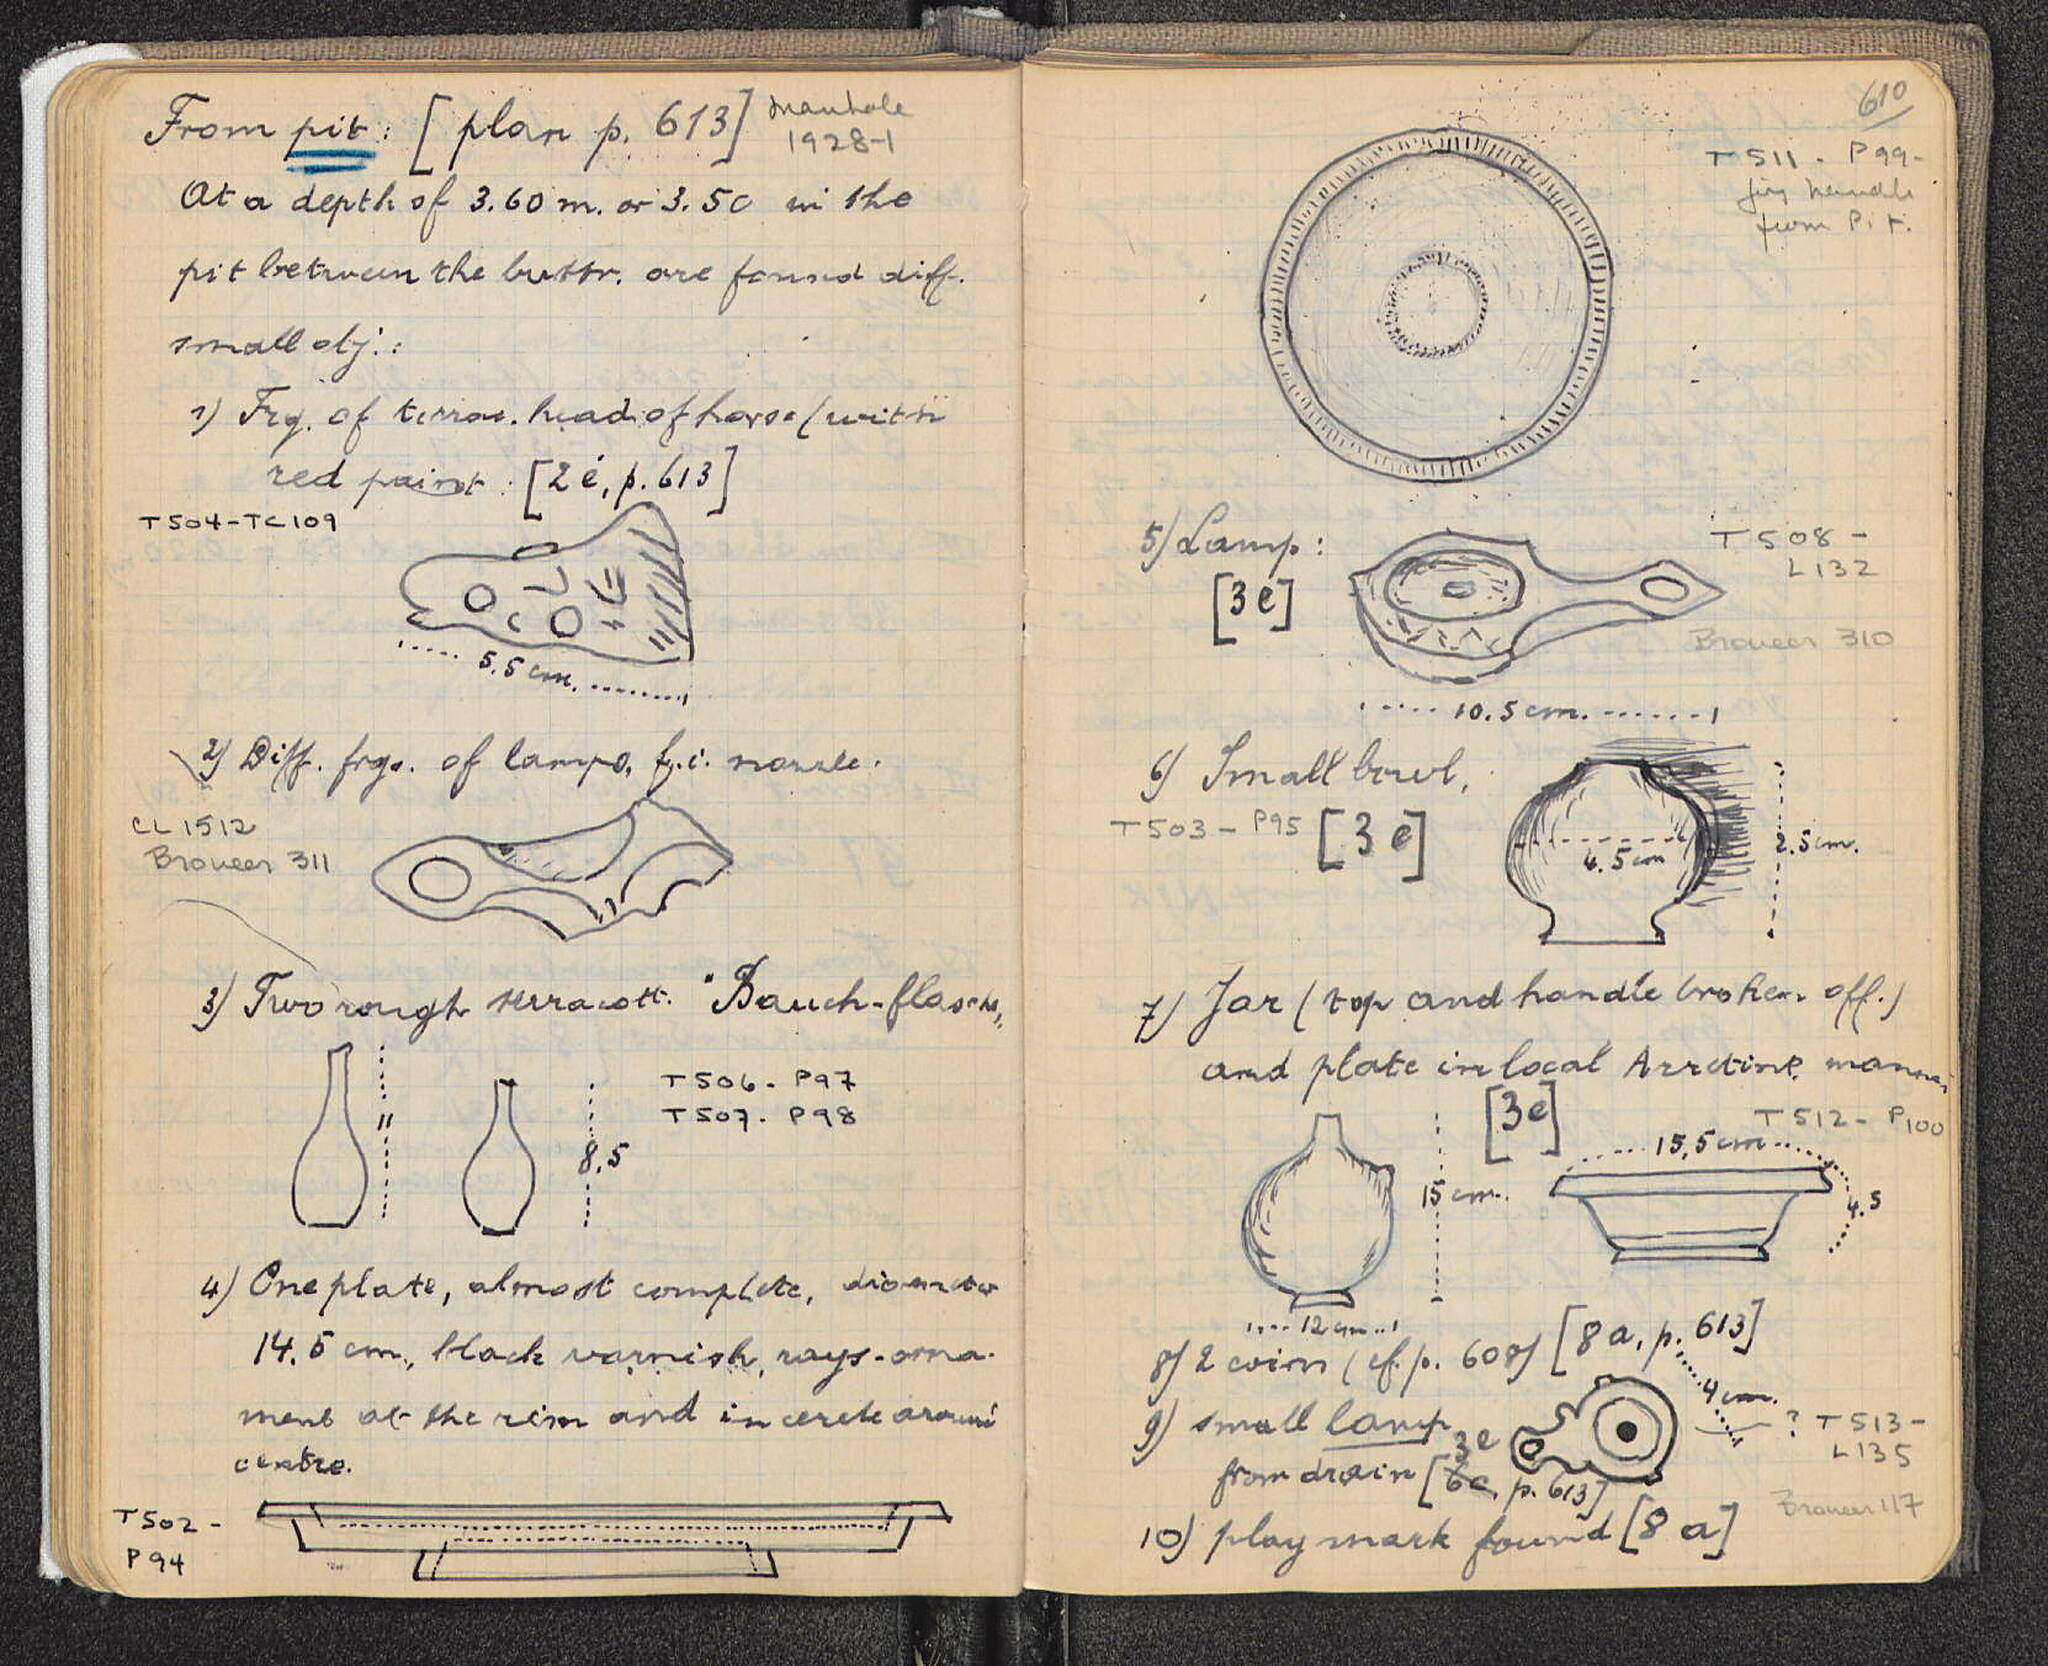 From pit: [plan p. 613] Manhole
1928-1
At a depth of 3.60 m. or 3.50 in the
pit between the buttr. are found diff.
small obj.:
1) Frg. of terrac. head of horse (with
red paint: [2 e, p. 613]
T504-TC109
5.5 cm.
2) Diff. frgs. of lamps, f.i. nozzle.
CL 1512
Broneer 311
3) Two rough terracott. "Bauch-flasche"
T506- P97
T507- P98
11
8,5
4) One plate, almost complete, diameter
14.5 cm., black varnish, rays-orna-
ment at the rim and in cercle around
centre.
T502-
P94
610
T511- P99-
jug handle
from Pit.
5) Lamp:
[3 e]
T508-
L132
Broneer 310
10.5 cm.
6) Small bowl,
T503- P95 [3 e]
4.5 cm
2.5 cm.
7) Jar (top and handle broken off.)
and plate in local Arretine manner
[3e]
T512- P100
15,5 cm
15 cm.
4.5
12 cm.
8) 2 coins (cf. p. 608) [8 a, p. 613]
4 cm.
9) small lamp
? T513-
L135
3e
from drain [6c, p. 613]
Broneer 117
10) play mark found [8 a]